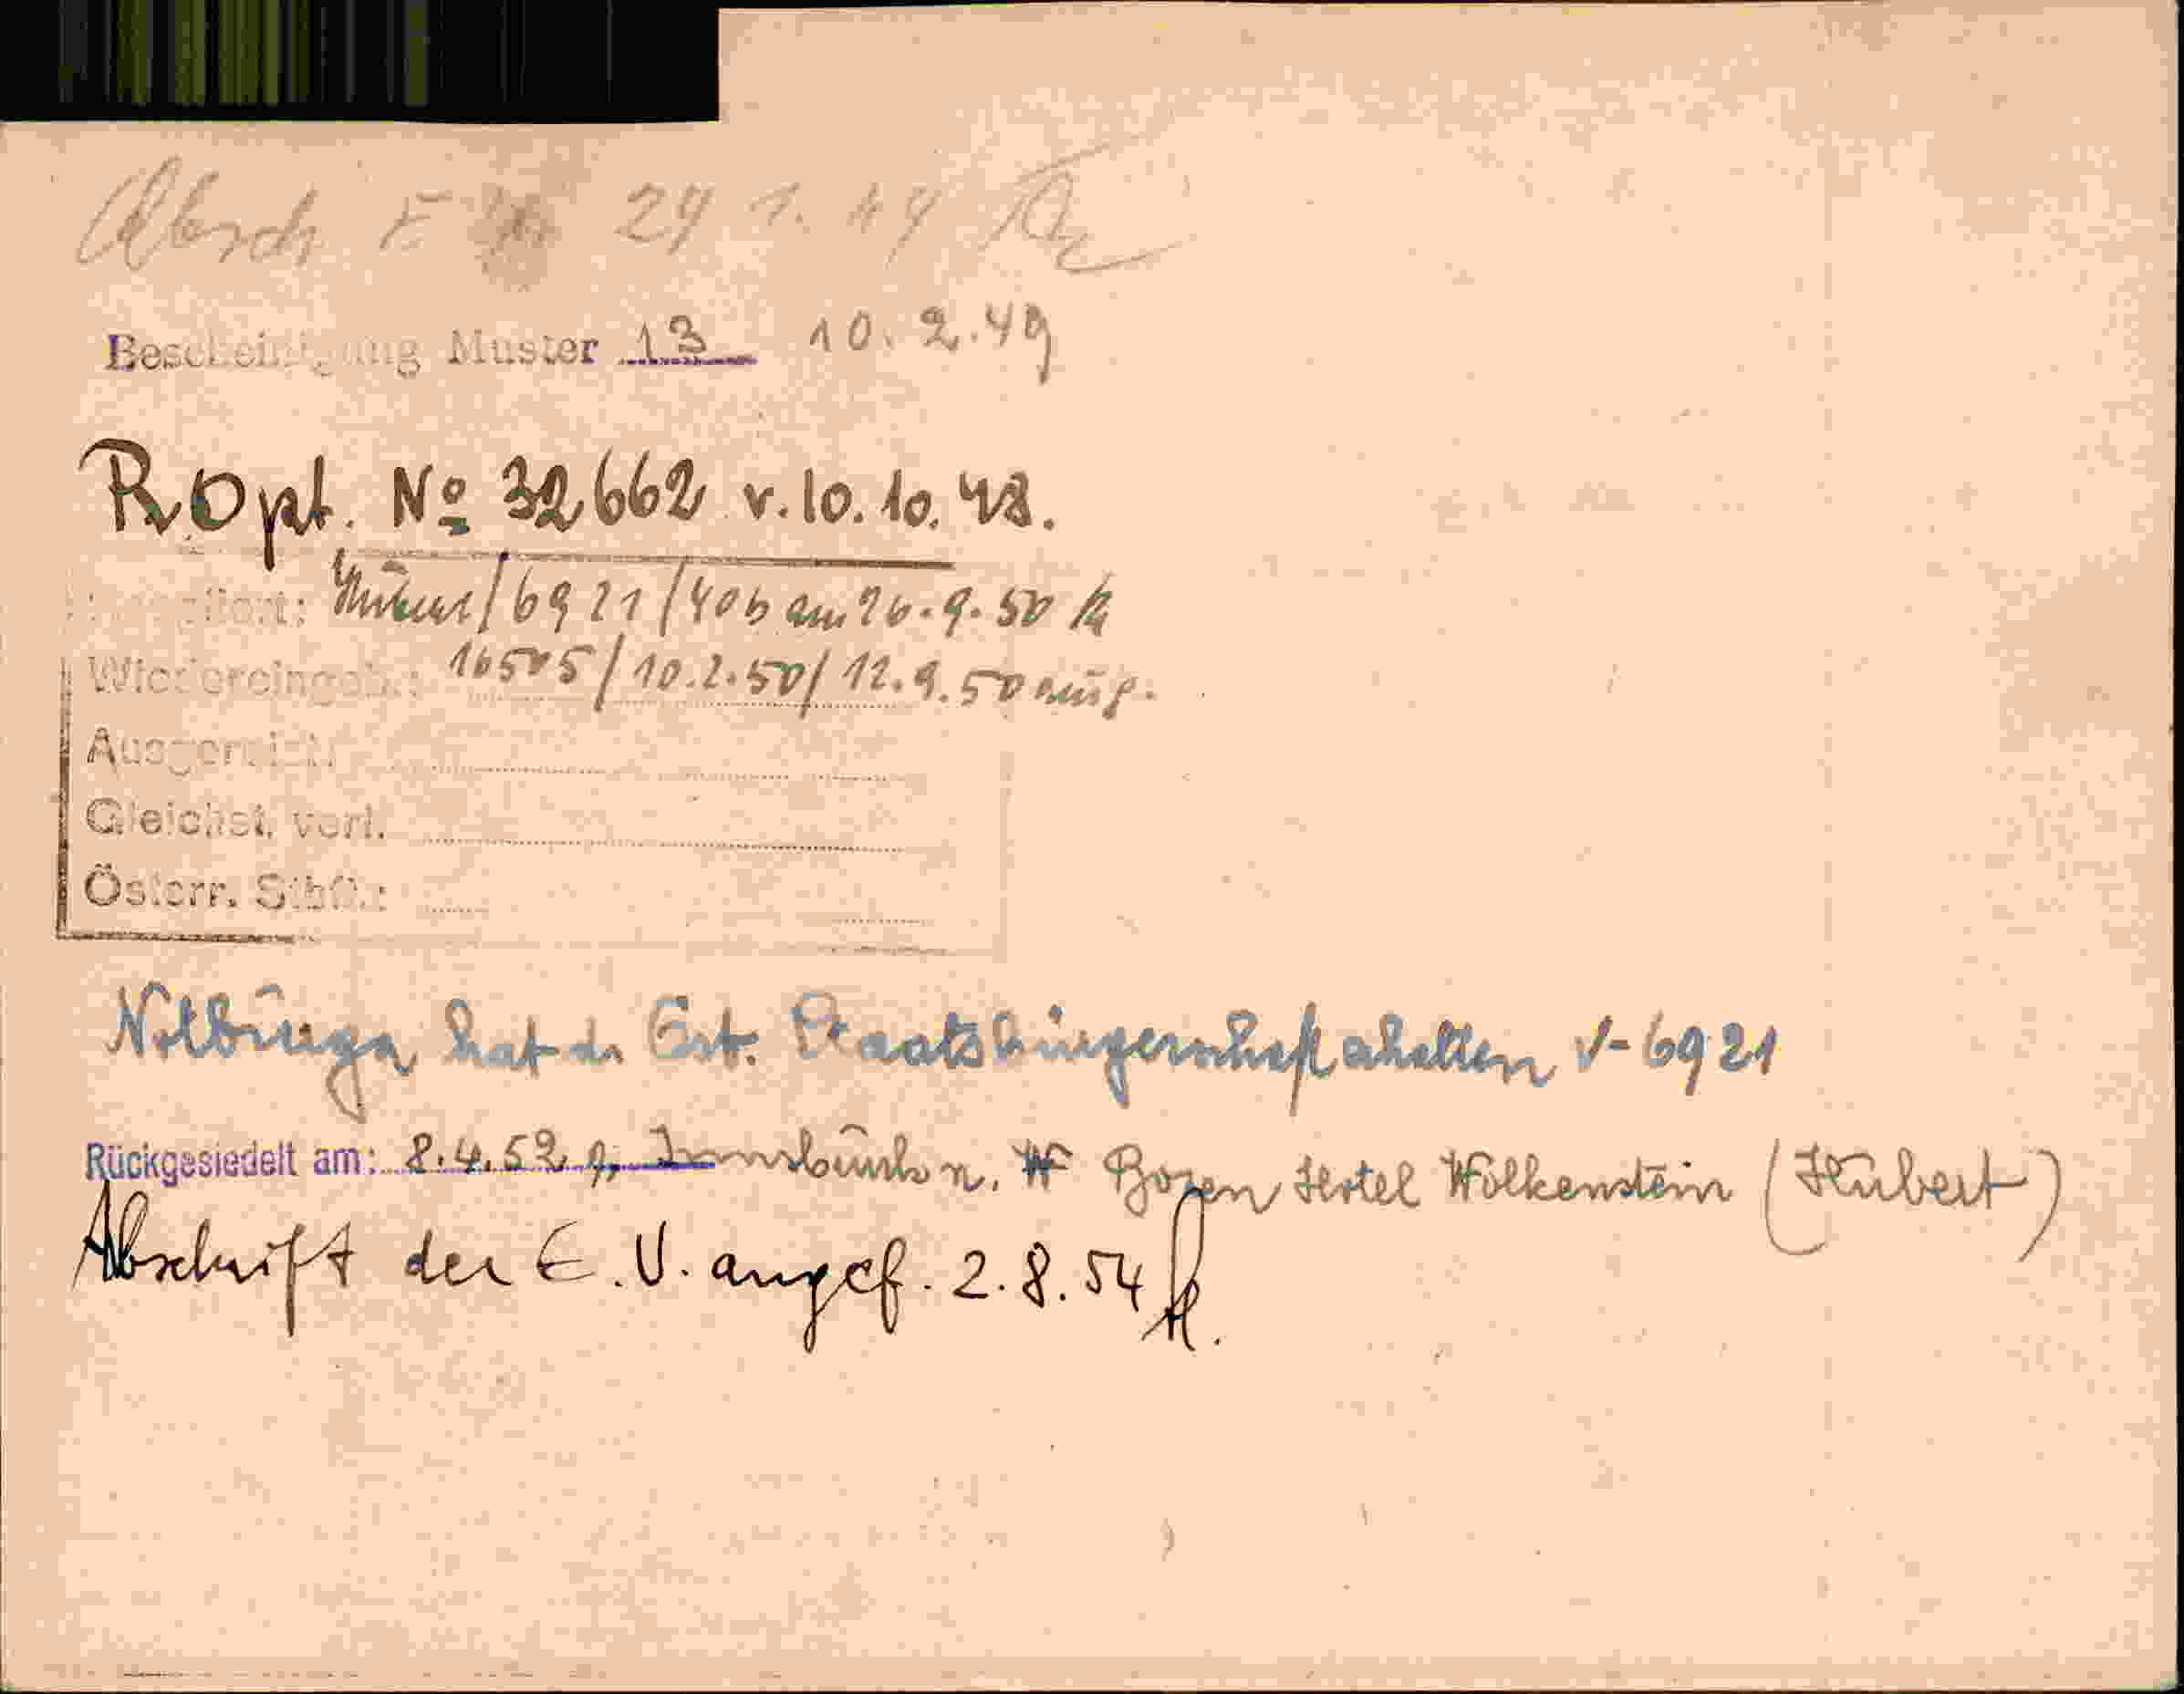 Absch E 29 1. 49
Bescheinigung Muster 13 10. 2. 49
ROpt. Nº 32662 v. 10. 10. 48.
/ 6921 / 40b am 26. 9. 50
Wiedereingeb.: 16505 / 10. 2. 50 / 12. 9. 50
Ausgereicht:
Gleichst. verl.
Österr. Stbft.:
Notburga hat d. Öst. Staatsbürgerschaft erhalten V- 6921
Rückgesiedelt am: 8. 4. 52 Innsbruck n. Bozen Hotel Wolkenstein (Hubert)
Abschrift der E. V. angef. 2. 8. 54